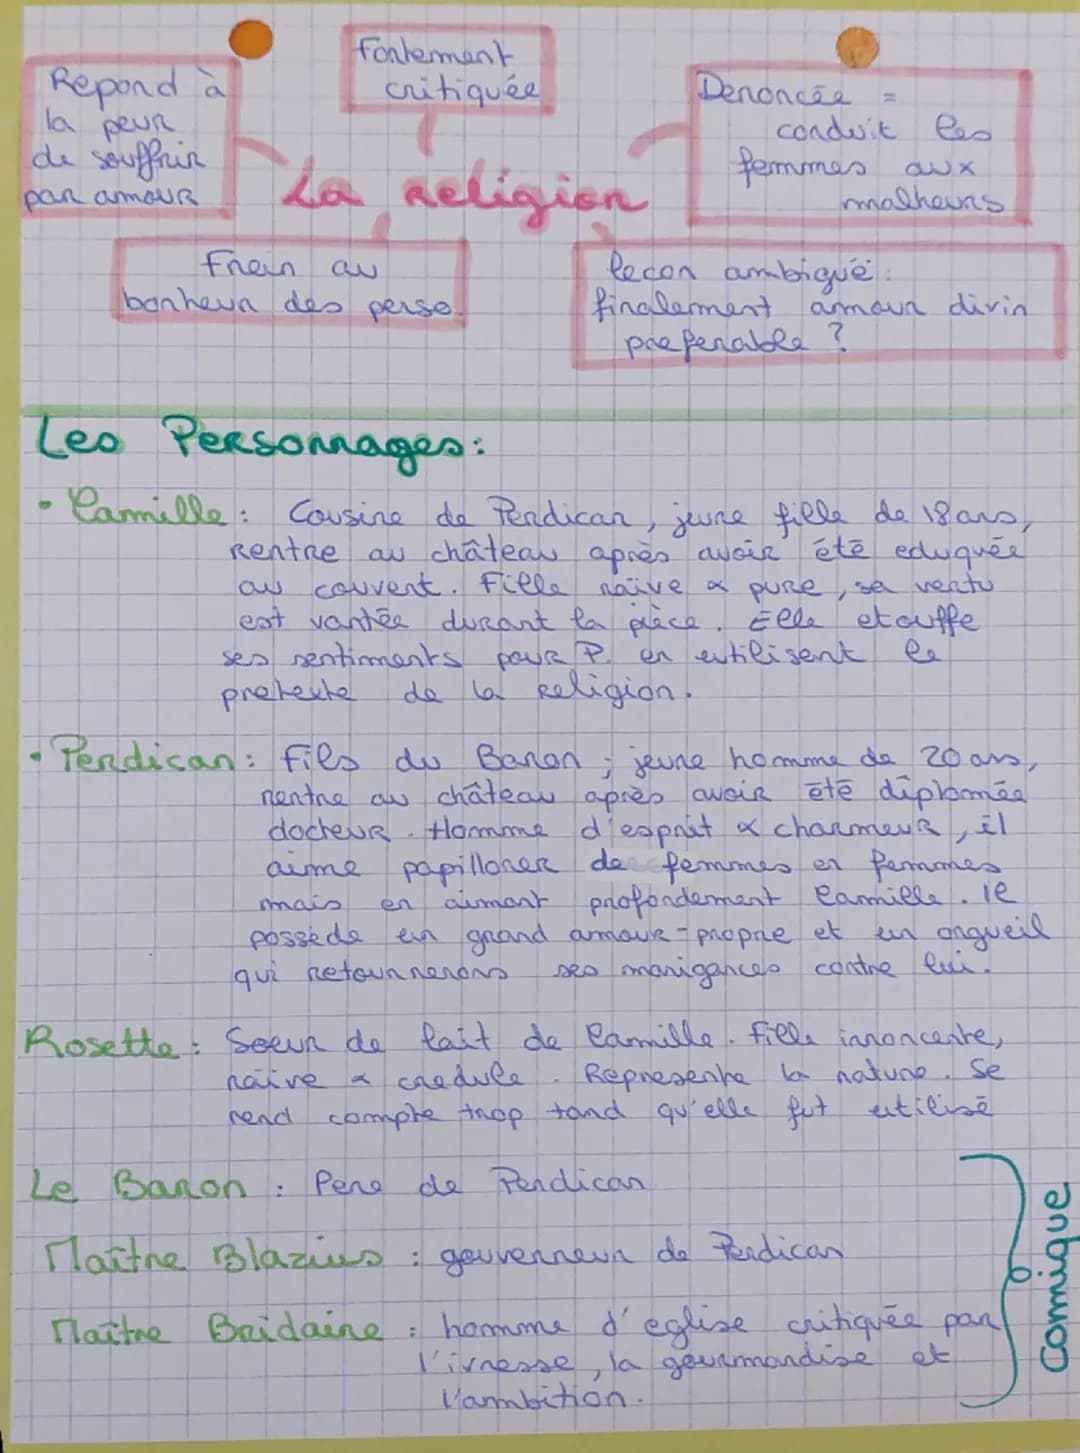 Fortement
critiquée
Repond à
la peur
de souffrir
par amour
Denoncée =
conduit les
femmes aux
malheurs
La Religion
Frein au
bonheur des perso.
leçon ambiguë :
finalement amour divin
preferable ?
Les Personnages:
• Camille : Cousine de Perdican, jeune fille de 18 ans,
Rentre au château après avoir été eduquée
au couvent. Fille naïve & pure, sa vertu
est vantée durant la pièce. Elle etouffe
ses sentiments pour P. en utilisent le
pretexte de la Religion.
• Perdican : fils du Baron ; jeune homme de 20 ans,
rentre au château après avoir été diplomée
docteur. Homme d'esprit & charmeur, il
aime papilloner de femmes en femmes
mais en aimant profondement Camille. Il
possède un grand amour-propre et un orgueil
qui Retournerons ses manigances contre lui.
Rosette : Soeur de lait de Camille. fille innoncente,
naïve & credule. Represente la nature. Se
rend compte trop tard qu'elle fut utilisé
Le Baron : Pere de Perdican
Maître Blazius : gouverneur de Perdican
Maître Bridaine : homme d'eglise critiquée par
l'ivresse, la gourmandise et
l'ambition.
Comique